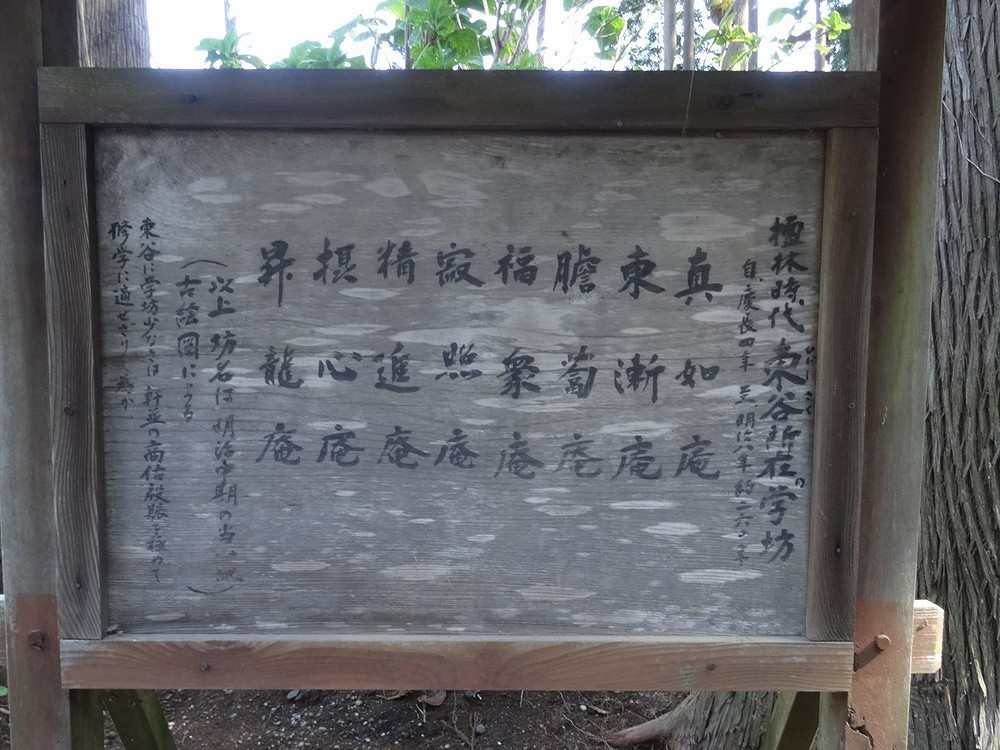 檀林時代 東谷所在の学坊
自慶長四年 至明治八年 約二六〇年
真如庵
東漸庵
膽蔔庵
福衆庵
寂照庵
精進庵
摂心庵
昇龍庵
(以上 坊名は明治中期の
古絵図による)
東谷に学坊少なきは 軒並の商估殷賑を極めて
修学に適せざりし為か